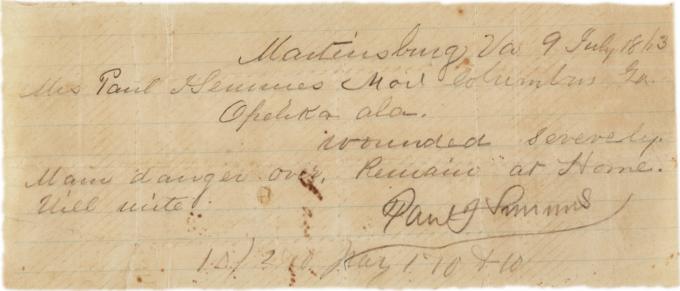 Martinsburg Va 9 July 1863
Mrs Paul J Semmes Columbus Ga.
Opelika ala.
wounded severely.
Main danger over. Remain at Home.
Will write.
Paul J Semmes